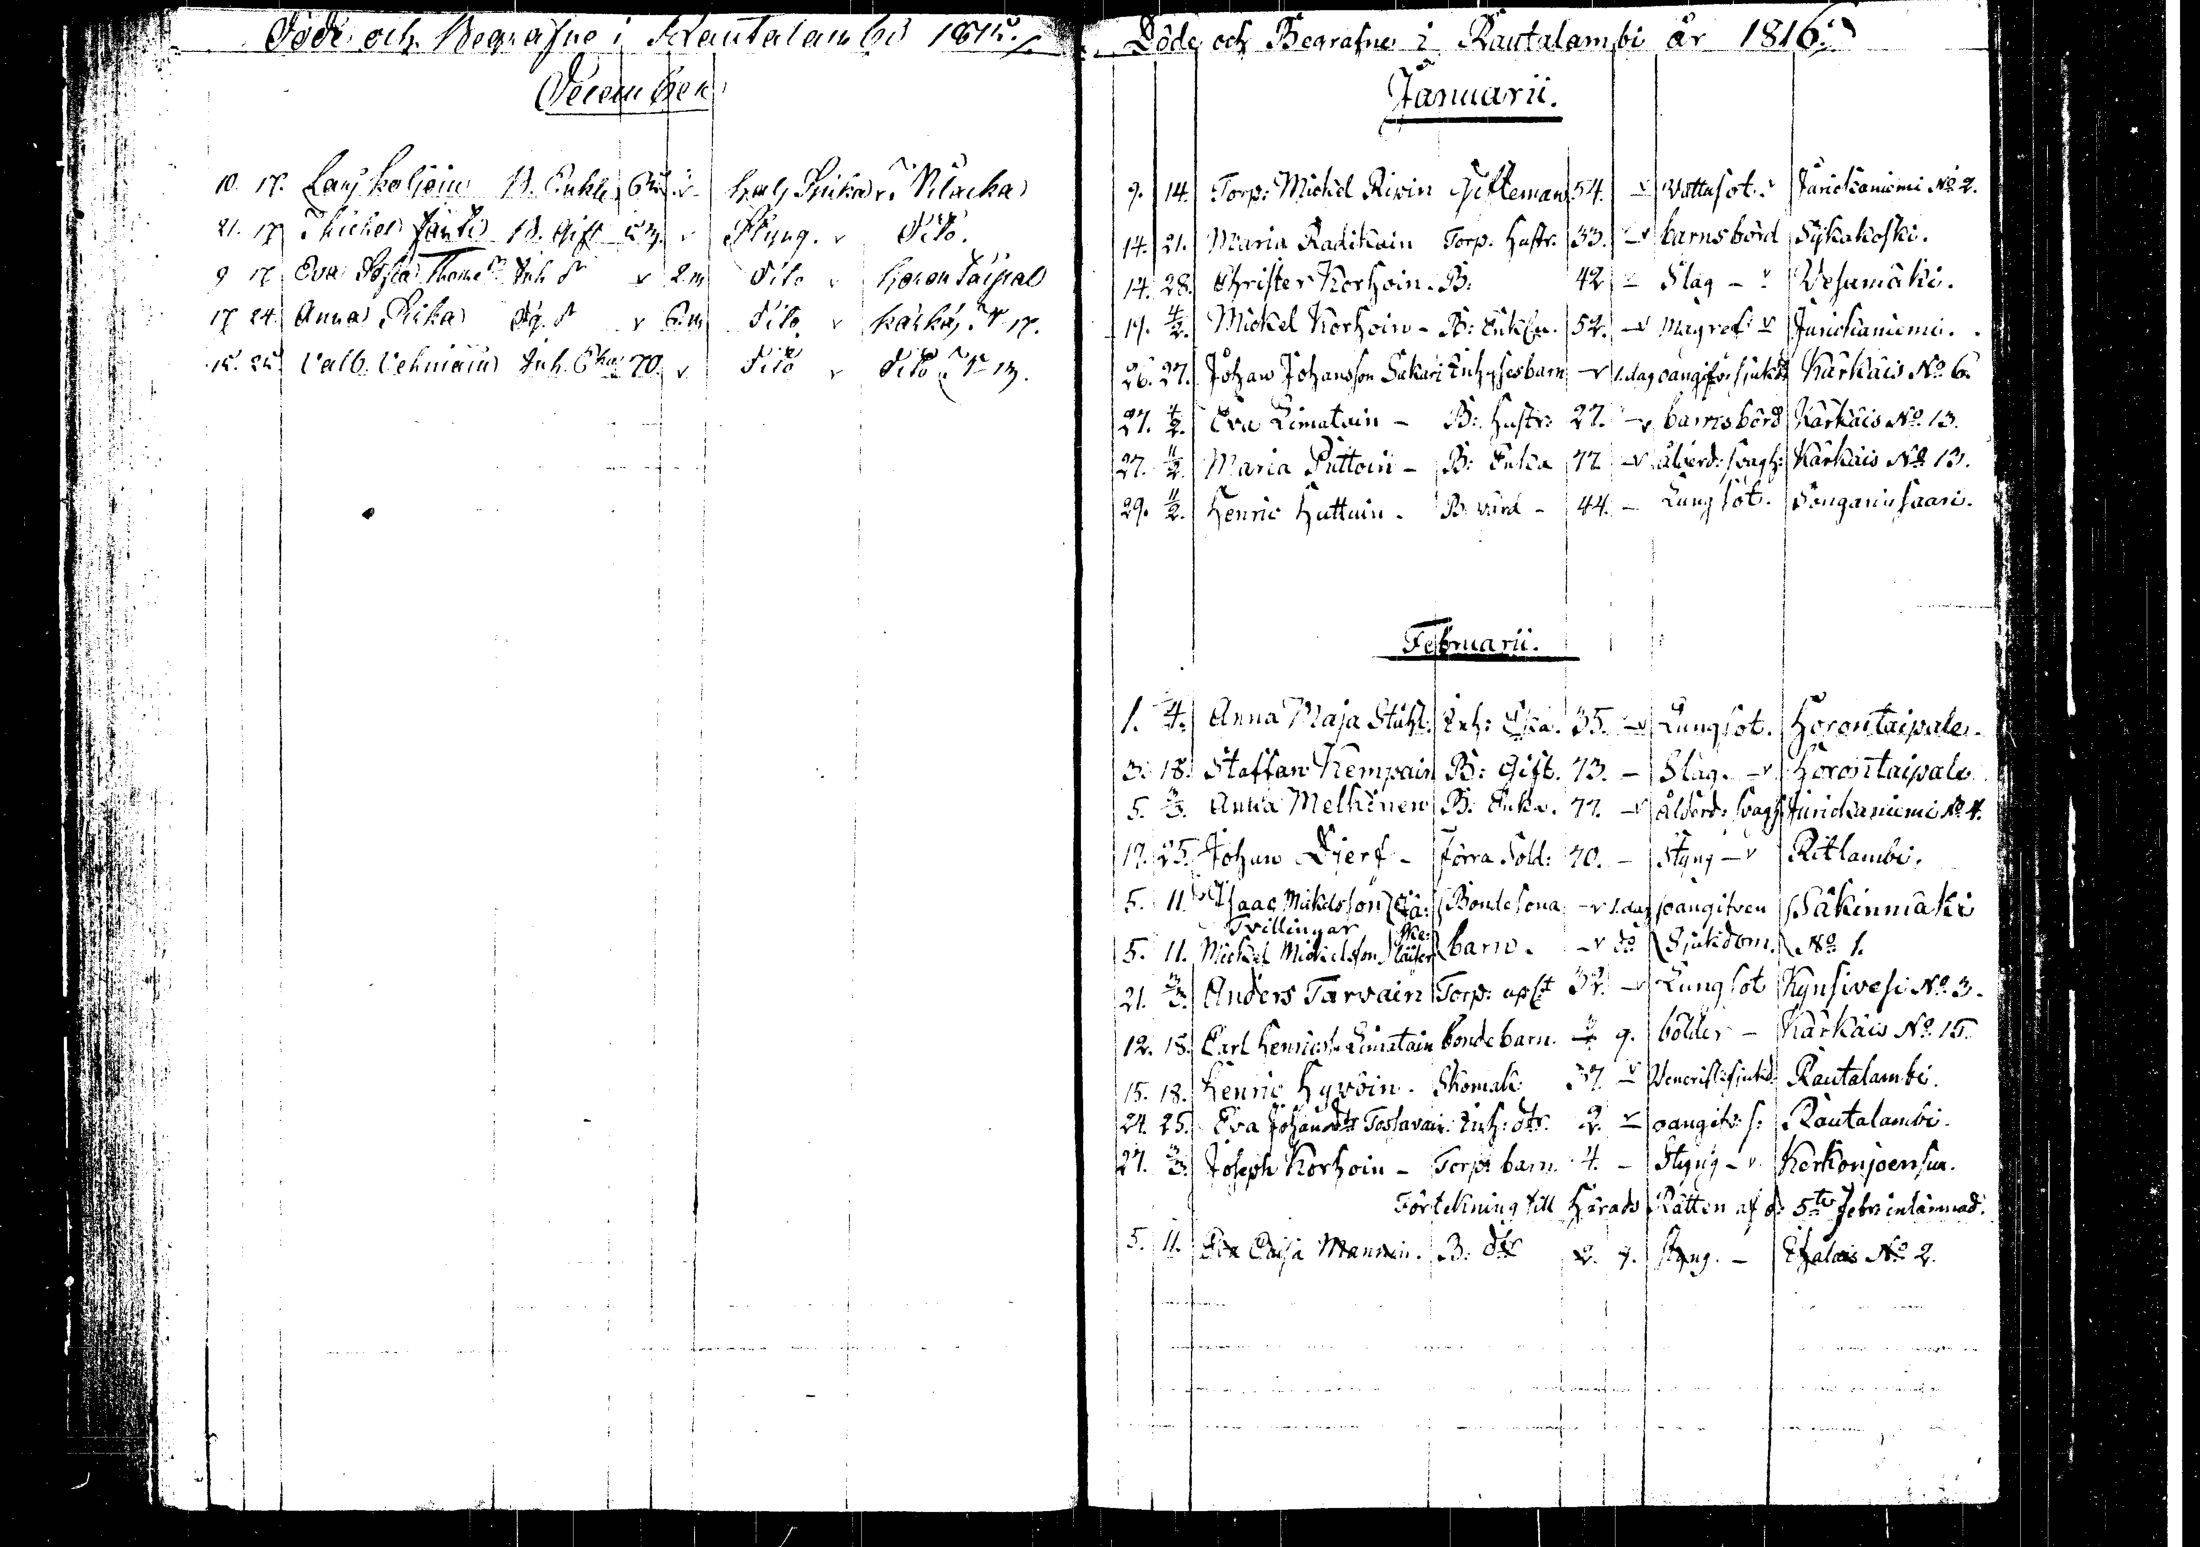 Döde och Begrafne i Rautalambi 1815.
December
10. 17. Lars B. Enkl.
21. 17 Michel B. Gift Styng. Dito.
9 17 Eva Inh. dr 2 m Dito Horontaipal
17 24. Anna Rika dr 6. m Dito Kärkäis N 17.
15. 25 Valb. Vehniäin Inh. Eka 70 Dito Dito N 13.
Döde och Begrafne i Rautalambi år 1816.
Januarii.
9. 14. Torp: Mickel Gifteman 54. Wattusot. Jurickaniemi No 2.
14. 21. Maria Radikain Torp. Hustr. 33. barnsbörd Sykäkoski.
14. 28. Christer Korhoin. B: 42 Slag Vesamäki.
19. 4/2. Mickel Korhoin - B: Enklin. 52. Magref Jurickaniemi.
26. 27. Johan Johansson Sakari Inhysesbarn 1. dag oangifv: sjukd: Kärkäis No 6.
27. 4/2. Eva Limatain - B: Hustr: 27. barnsbörd Kärkäis No. 13.
27. 11/2. Maria Puttoin - B: Enka 77 ålderd: svagh: Kärkäis No 13.
29. 11/2. Henric Huttuin. B. värd - 44. - Lungsot. Songarinsaari.
Februarii.
1. 4. Anna Maja Ståhl: Inh: Eka. 35. Lungsot. Horontaipale.
3. 18. Staffan Kempain B: Gift. 73. - Slag. Horontaipale
5. 3/3. Anna Melkinen B: Enka. 77. ålderd: svagh. Jurickaniemi No 4.
17. 25. Johan Djerf - förra Sold: 70. - Styng Ritlambi.
5. 11. Isaac Mickelsson Bondesona 1. dag oangifven Säkinmäki
Tvillingar
5. 11. Mickel Mickelsson barn. do sjukdom. No 1.
21. 3/3. Anders Tarvain Torp: 32. Lungsot Kynsivesi No. 3.
12. 18. Carl Henricss. Limatain bonde barn. 9. bölder - Kärkäis No. 15.
15. 18. Henric Hyvöin. Skomak: 37. Venerisk sjukd: Rautalambi.
24. 25. Eva Johansdtr Toslavain. Inh: dtr. 2. oangifv: s: Rautalambi.
27. 3/3. Joseph Korhoin - Torp: barn. 4. - Styng Kerkonjoensuu.
Förtekning till Härads Rätten af d. 5te febr: inlämnad.
5. 11. Eva Caisa Mannin. B: dtr 2. 7. styng. - No 2.